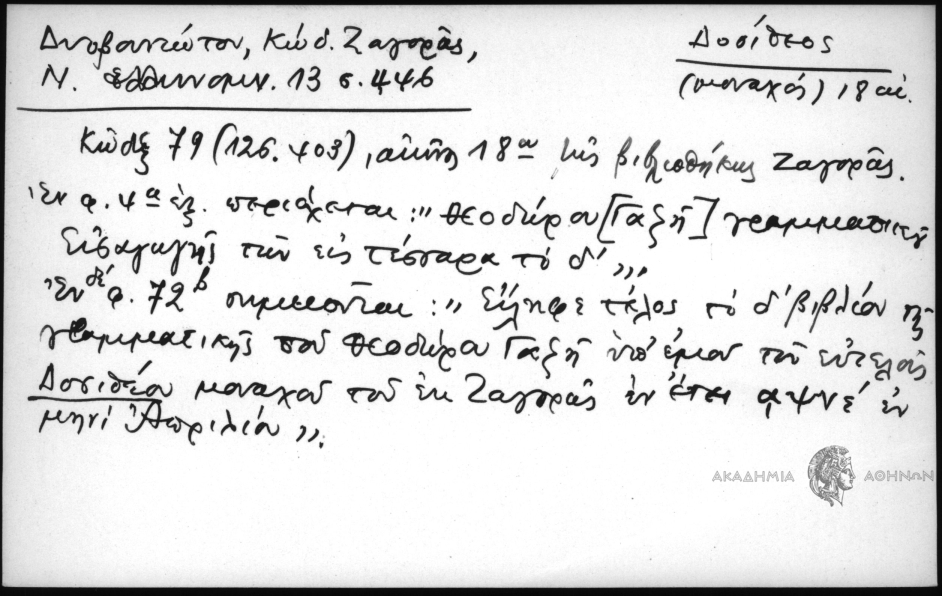 Δυοβουνιώτου, Κώδ. Ζαγορᾶς,
Ν. Ἑλληνομν. 13 σ. 446
Δοσίθεος
(μοναχός) 18 αἰ.
Κώδιξ 79 (126. 403), αἰῶνος 18ου τῆς βιβλιοθήκης Ζαγορᾶς.
Ἐν φ. 4α ἑξ. περιέχεται: „Θεοδώρου [Γαζῆ] γραμματικῆς
Εἰσαγωγῆς τῶν εἰς τέσσαρα τὸ δ'„,
Ἐν δὲ φ. 72β σημειοῦται: „Εἴληφε τέλος τὸ δ' βιβλίον τῆς
γραμματικῆς τοῦ Θεοδώρου Γαζῆ ὑπ' ἐμοῦ τοῦ εὐτελοῦς
Δοσιθέου μοναχοῦ τοῦ ἐκ Ζαγορᾶς ἐν ἔτει αψνέ ἐν
μηνὶ Ἀπριλίου„.
ΑΚΑΔΗΜΙΑ ΑΘΗΝΩΝ